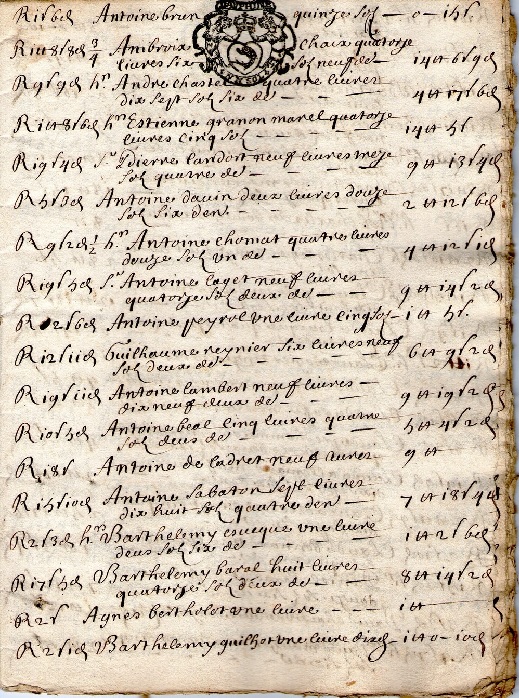 R 1s 6d Antoine brun quinze sol — 0 – 15s.
Ambroix chaix quatorze
livres six sol neuf de — 14tt 6s 9d
R 9s 9d hr. Andre chastel quatre livres
dix sept sol six de — 4tt 17s 6d
hrs Estienne granon marel quatorze
livres cinq sol — 14tt 5s
R 19s 4d sr. Pierre landort neuf livres treze
sol quatre de — 9tt 13s 4d
R 5s 3d Antoine dauin deux livres douze
sol six den — 2tt 12s 6d
R 9s 2d ½ hr. Antoine chomat quatre livres
douze sol un de — 4tt 12s 1d
R 19s 5d sr. Antoine laget neuf livres
quatorze sol deux de — 9tt 14s 2d
R 2s 6d Antoine peyrol une livre cinq sol — 1tt 5s.
R 12s 11d Guilhaume reynier six livres neuf
sol deux de — 6tt 9s 2d
R 19s 11d Antoine lambert neuf livres —
dix neuf deux de — 9tt 19s 2d
R 10s 5d Antoine beal cinq livres quatre
sol deux de — 5tt 4s 2d
R 18s Antoine de ladret neuf livres 9tt
R 15s 10d Antoine sabaton sept livres
dix huit sol quatre den — 7tt 18s 4d
R 2s 3d hrs Barthelemy une livre
deux sol six de — 1tt 2s 6d
R 17s 5d Barthelemy baral huit livres
quatorze sol deux de — 8tt 14s 2d
R 2s Agnes bertholot une livre — 1tt
R 2s 1d Barthelemy guilhot une livre dix d — 1tt 0 – 10d